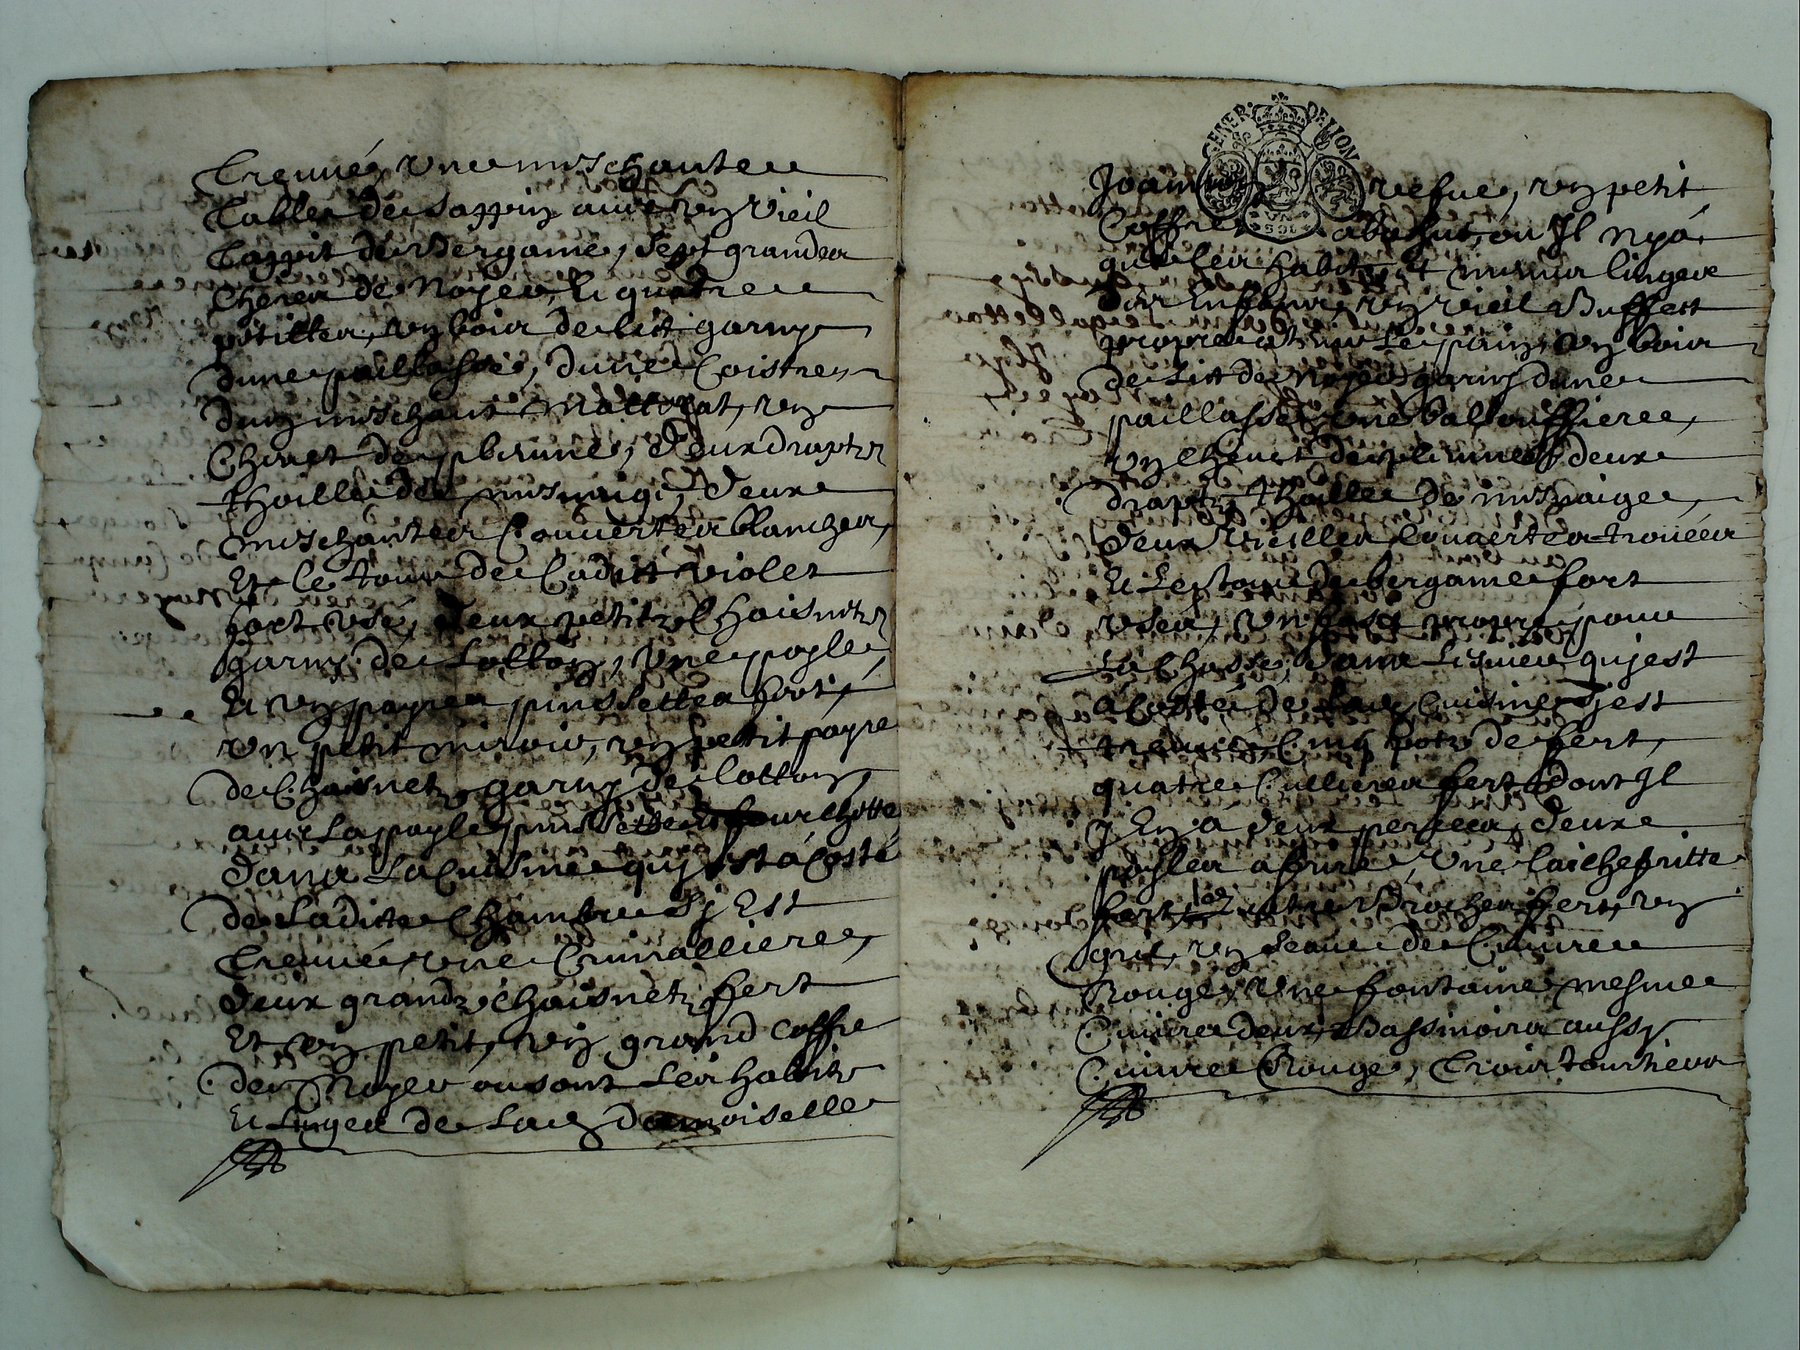 treuvé, une meschante
table de sappin avec un vieil
tappit de Bergame, sept grandes
cheres de noyer, Et quatre
petittes, un bois de lict garny
dune paillasse, dune coistre,
dun meschant mattelat, un
chevet de plume, deux draptz
thoille de mesnaige, deux
meschantes couvertes blanches,
Et le tour de Caditz violet
fort usé, deux petitz Chaisnetz
garny de lotton, une poyle
Et un payre pinssettes fert,
un petit miroir, un petit payre
de Chaisnetz garny de lotton
avec La poyle pinssette Et fourchette
dans La Cuisine quy est a Costé
de Ladite Chambre sy Est
treuvé, une Crimalliere,
deux grandz chaisnetz fert
Et un petit, un grand coffre
de Noyer ou sont Les habitz
Et Linges de Lad Damoiselle
GENER. DE LION
UN SOL
vefve, un petit
Coffre abahut, ou Il nya
que les habitz Et menus linges
des Enfans, un vieil Buffest
propre a tenir Le pain, un bois
de Lict de noyer garny dune
paillasse, une balouffiere,
un chevet de plume, deux
draptz thoille de mesnaige,
deux vieilles couvertes trouées
Et Le tour de bergame fort
usés, un propre pour
La Chasse, dans qui est
a Costé de Lad Cuisine sy est
treuvé, Cinq potz de fert,
quatre Cullieres fert dont Il
y En a deux percées, deux
poyles a frire, une laichefritte
fert, quatre Broches fert, un
gril, un seau de Cuivre
Rouge, une fontaine mesme
Cuivre deux Bassinoires aussy
Cuivre Rouge, trois tourtieres